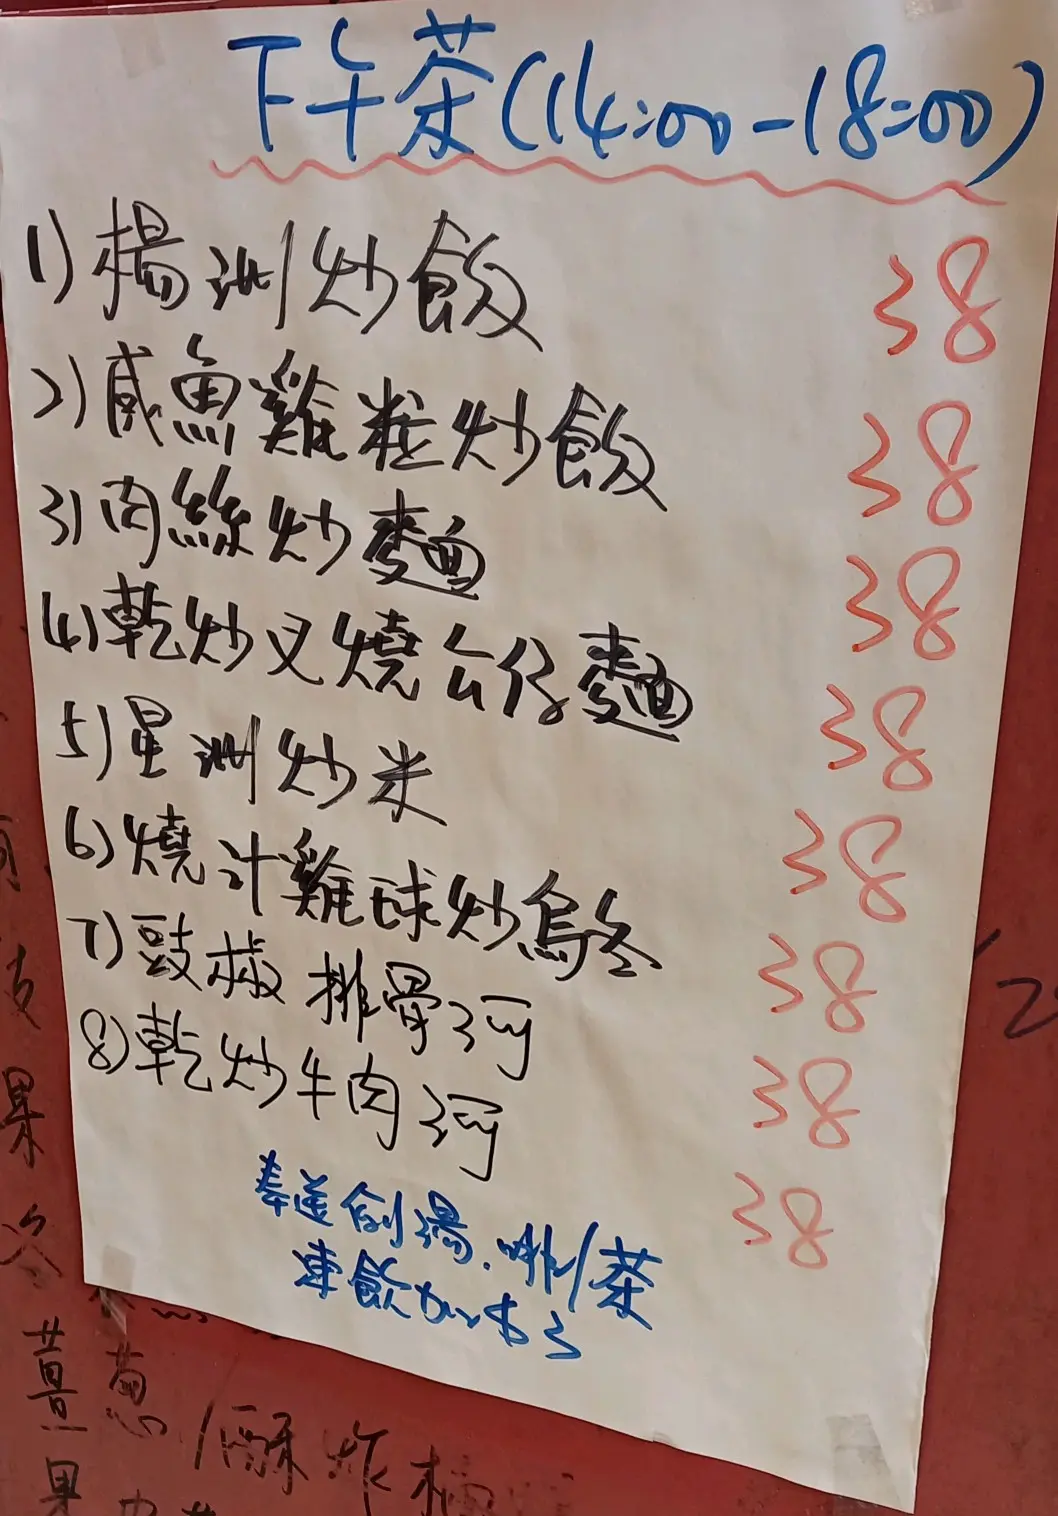 下午茶(14:00-18:00)
1)楊洲炒飯 38
2)咸魚雞粒炒飯 38
3)肉絲炒麵 38
4)乾炒叉燒公仔麵 38
5)星洲炒米 38
6)燒汁雞球炒烏冬 38
7)豉椒排骨河 38
8)乾炒牛肉河 38
奉送例湯.啡/茶
凍飲加$3
果
薑葱/酥炸
果